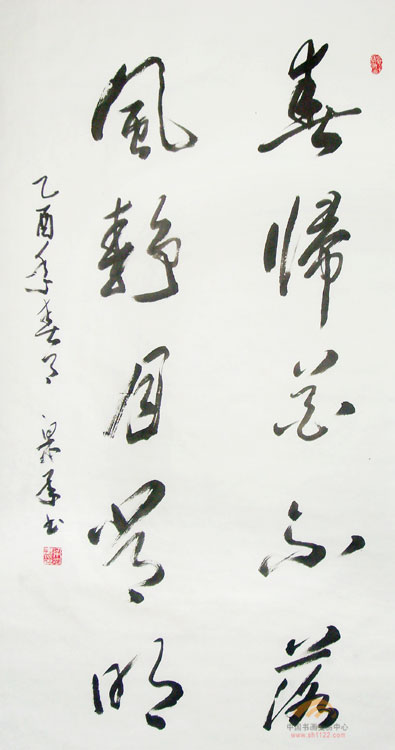 春歸花不落
風靜月常明
乙酉年春月
書
中国书画
中心
www.sh1122.com